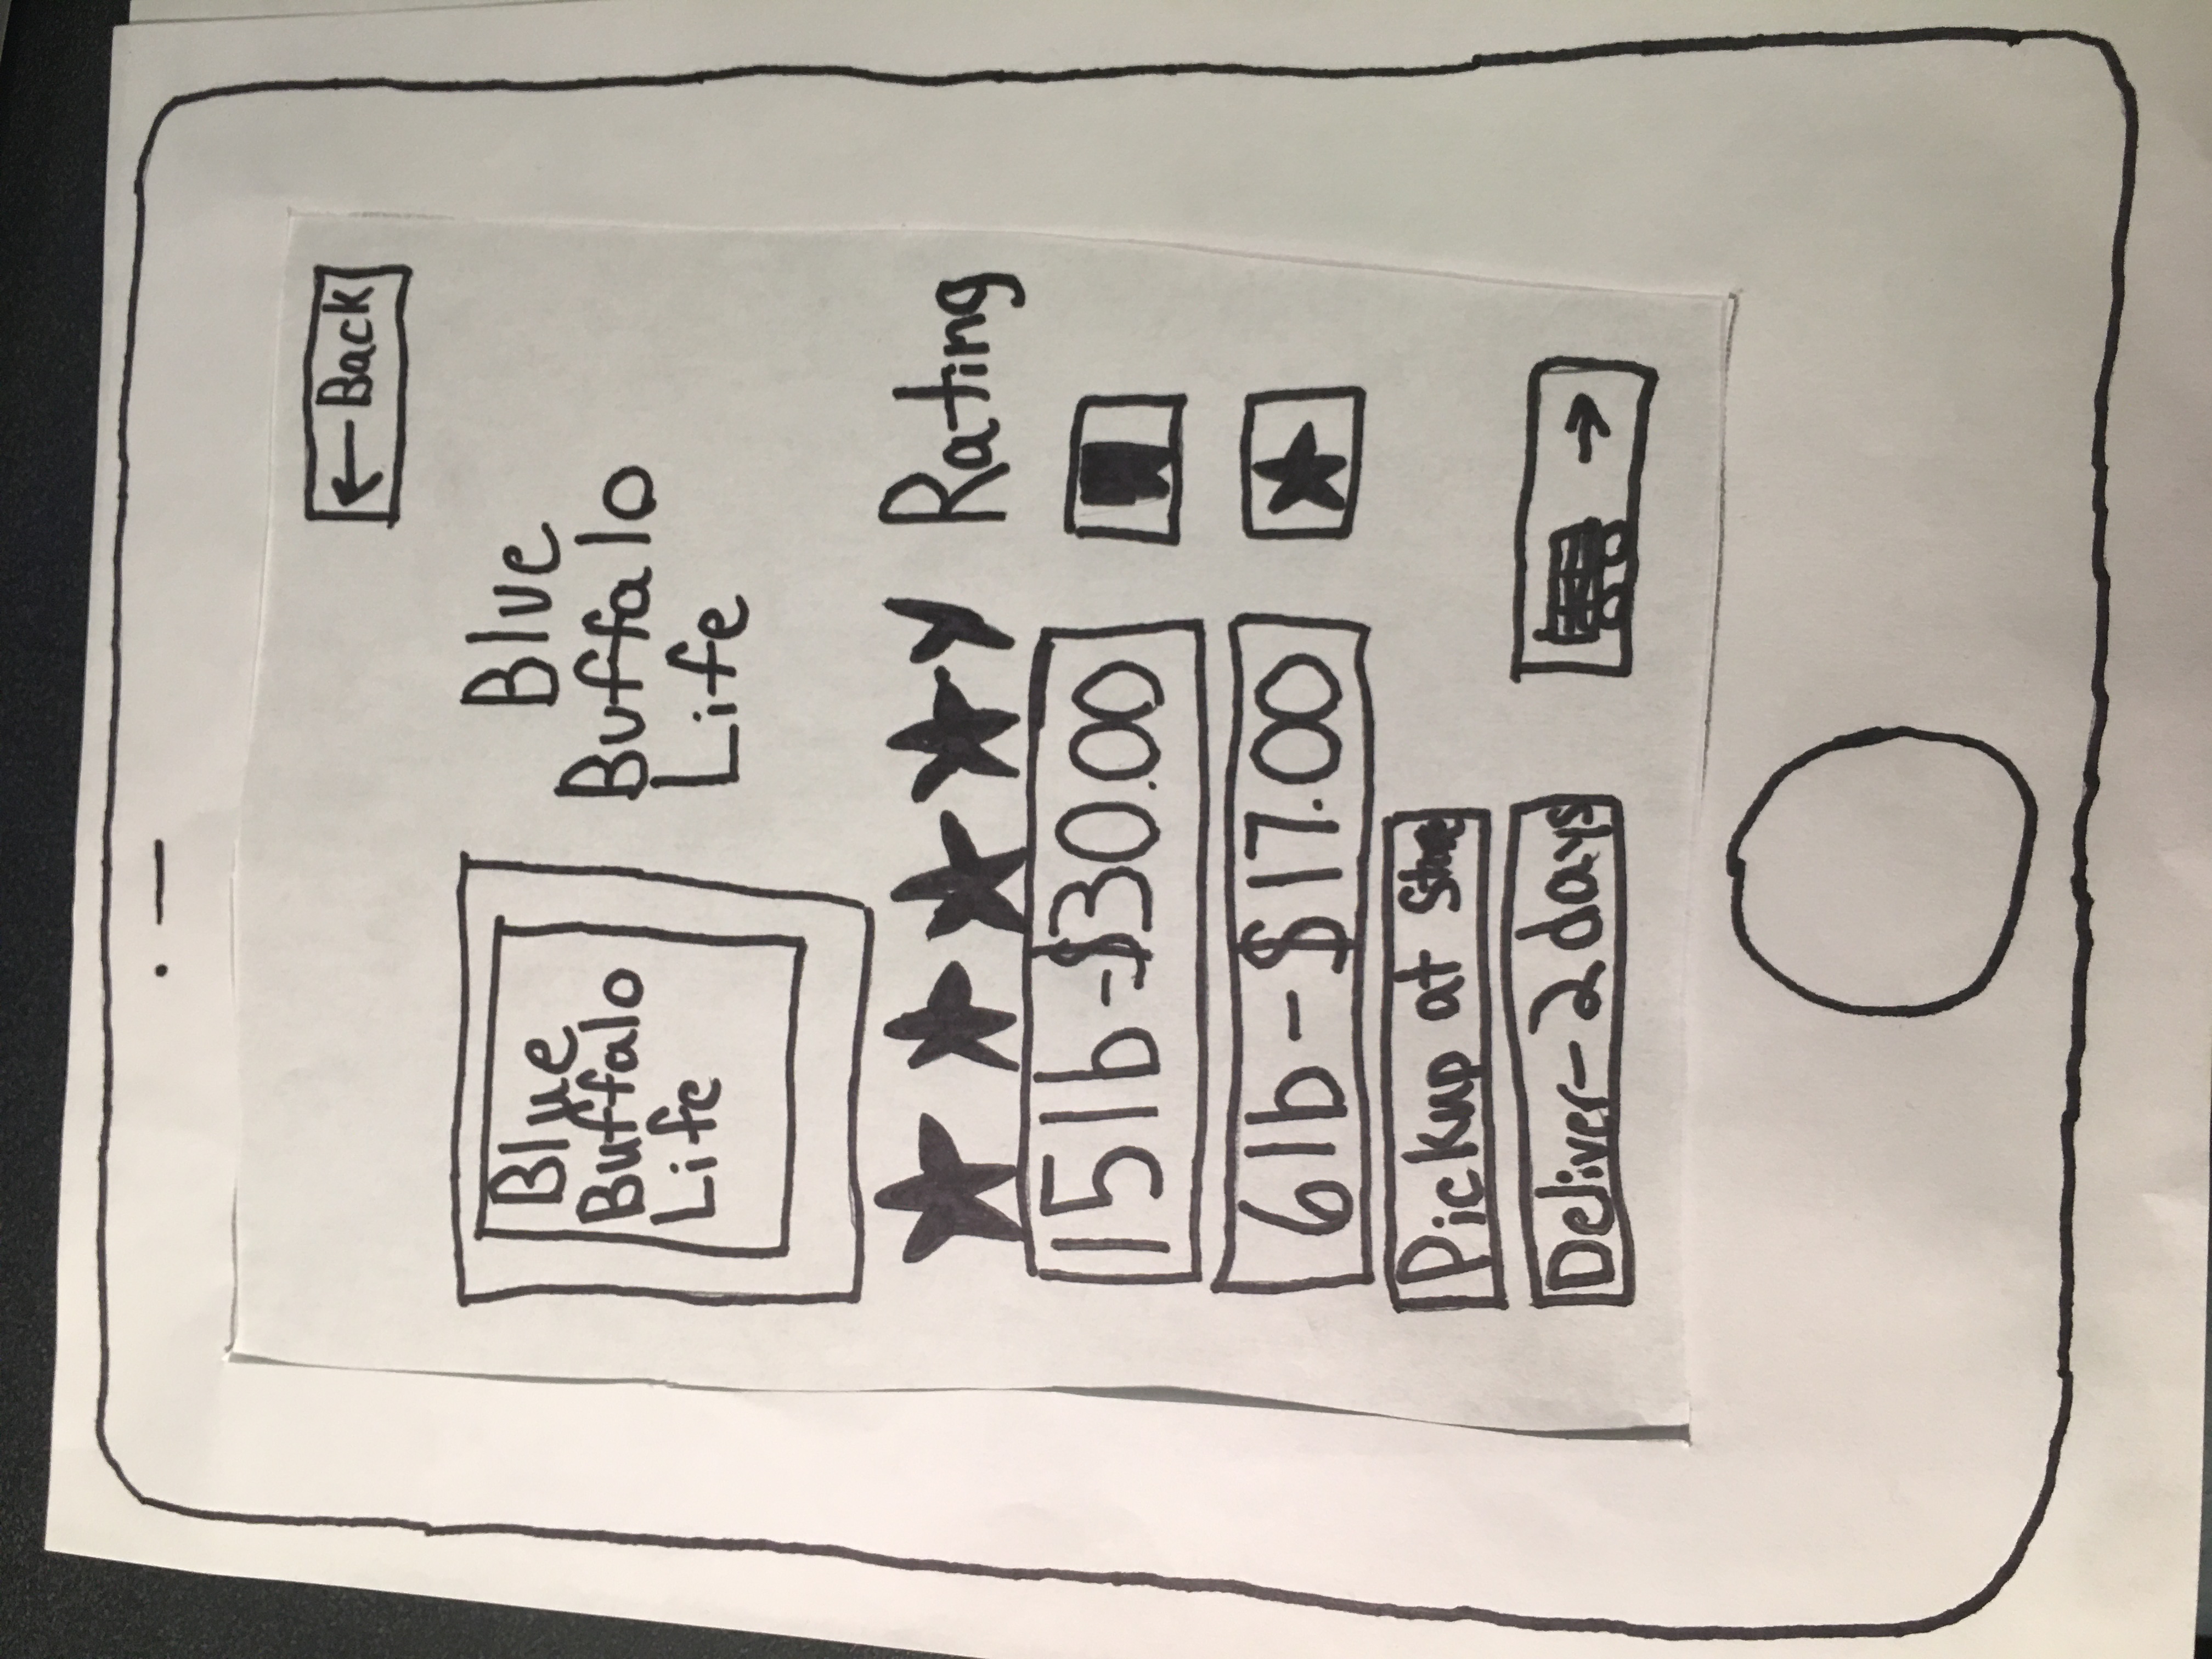 ← Back
Blue
Buffalo
Life
Blue
Buffalo
Life
Rating
15lb-$30.00
6lb-$17.00
Pickup at Store
Deliver-2 days
→